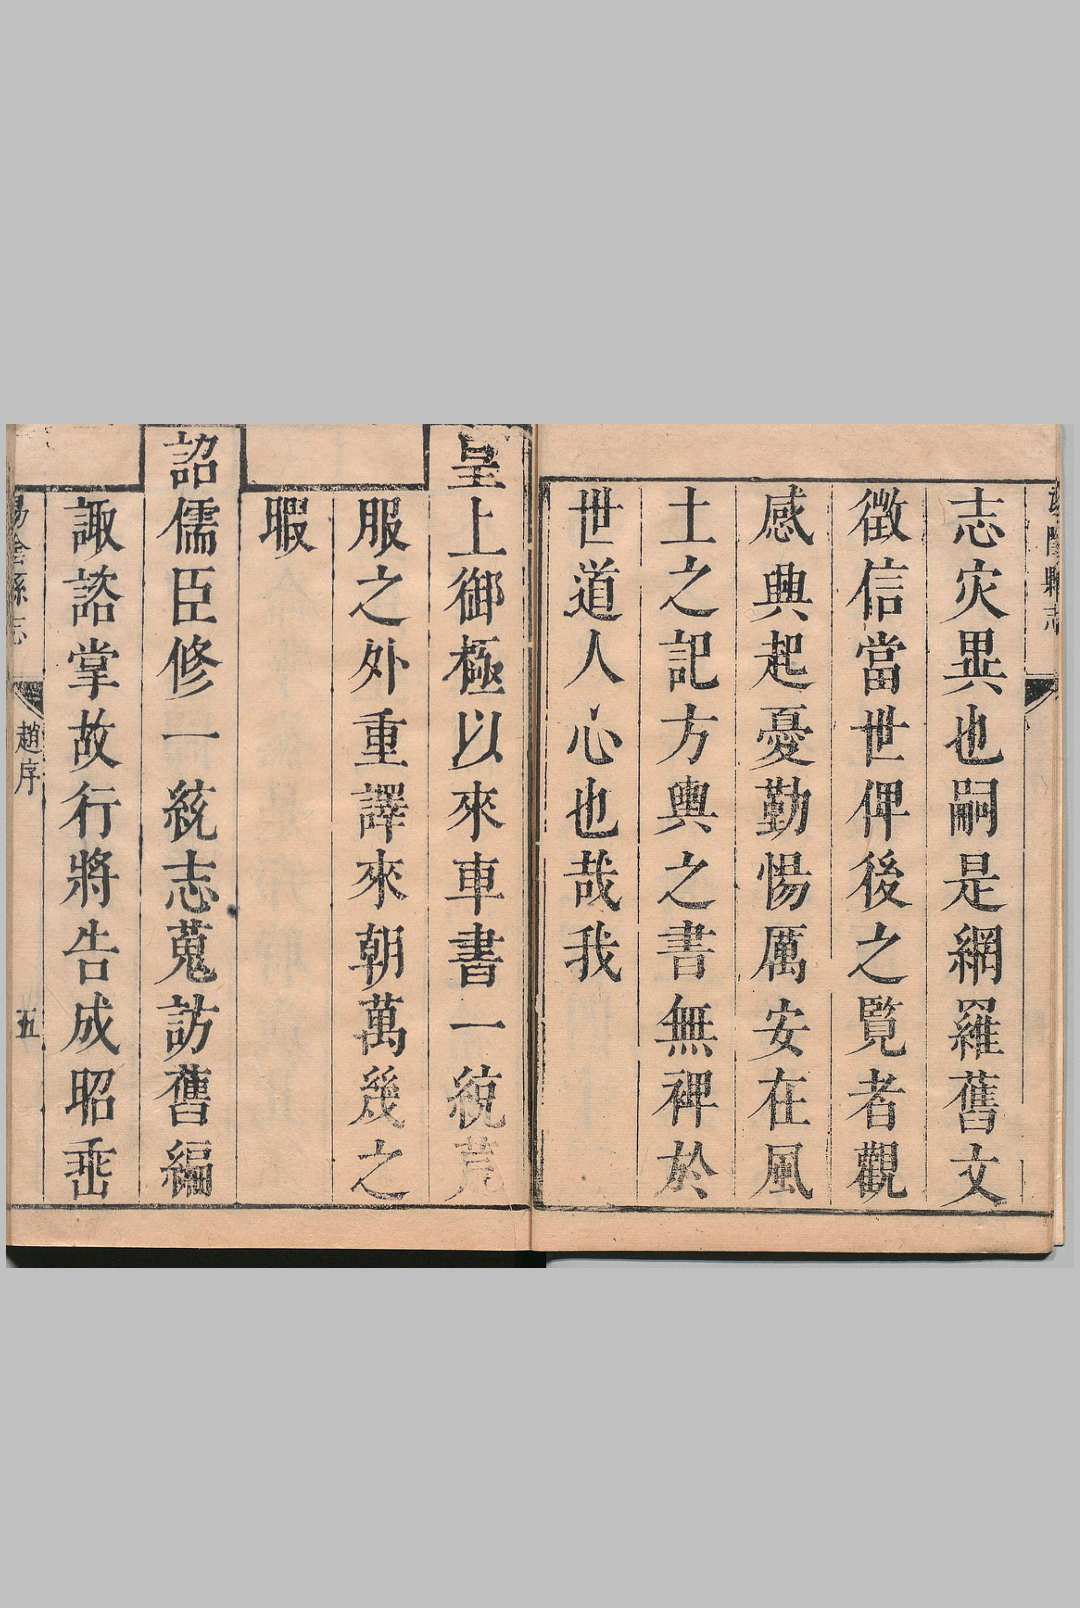 志灾異也嗣是網羅舊文
徵信當世俾後之覧者觀
感興起憂勤惕厲安在風
土之記方輿之書無裨於
世道人心也哉我
皇上御極以來車書一統荒
服之外重譯來朝萬幾之
暇
詔儒臣修一統志蒐訪舊編
諏諮掌故行將告成昭垂
趙序
五